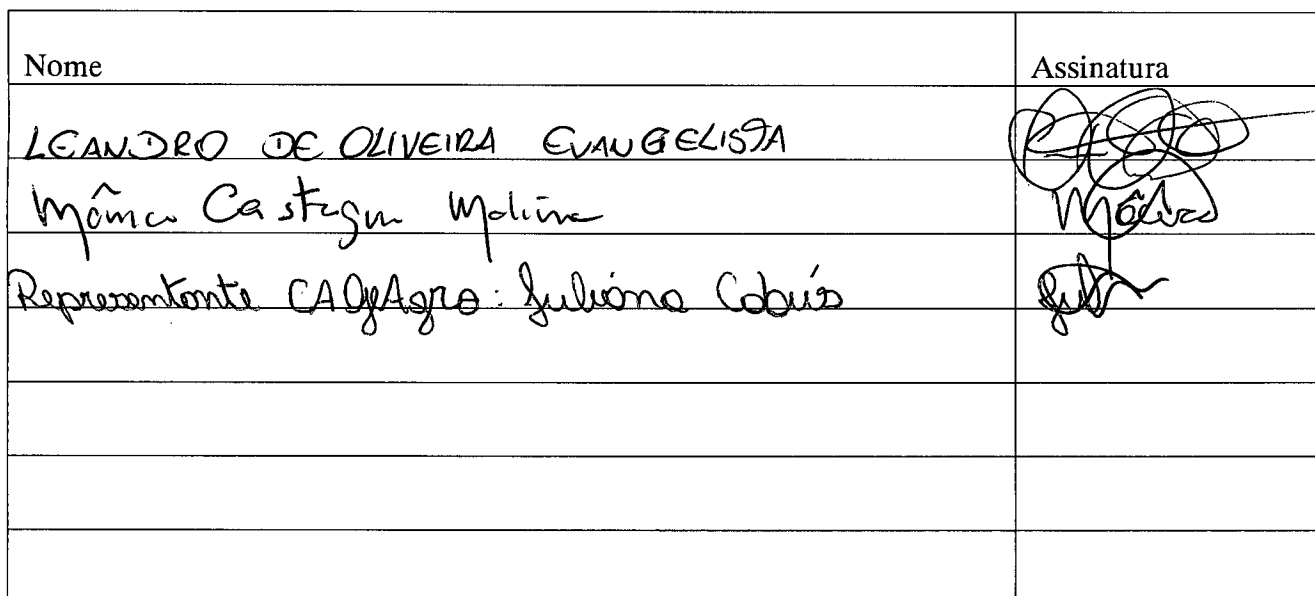 Nome Assinatura
LEANDRO DE OLIVEIRA EVANGELISTA
Mônica Castagn Molina
Representante CAGeAgro: Juliana